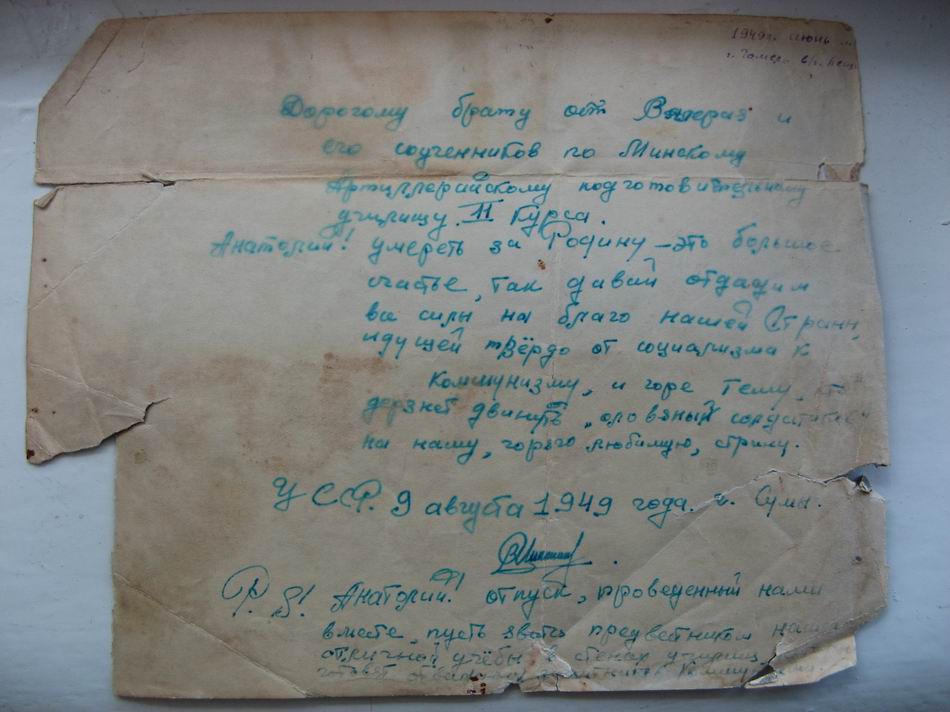 1949г. июнь
г. Гомель в/г.
Дорогому брату от Валерия и
его соучеников по Минскому
Артиллерийскому подготовительному
училищу II курса.
Анатолий! умереть за Родину – это большое
счастье, так давай отдадим
все силы на благо нашей Страны,
идущей твёрдо от социализма к
коммунизму, и горе тему, кто
дерзнет двинуть „оловяных солдатиков"
на нашу, горячо любимую, страну.
УССР. 9 августа 1949 года. г. Сумы.
P. S! Анатолий! отпуск, проведенный нами
вместе, пусть предвестником нашей
отличной учёбы в стенах училищ,